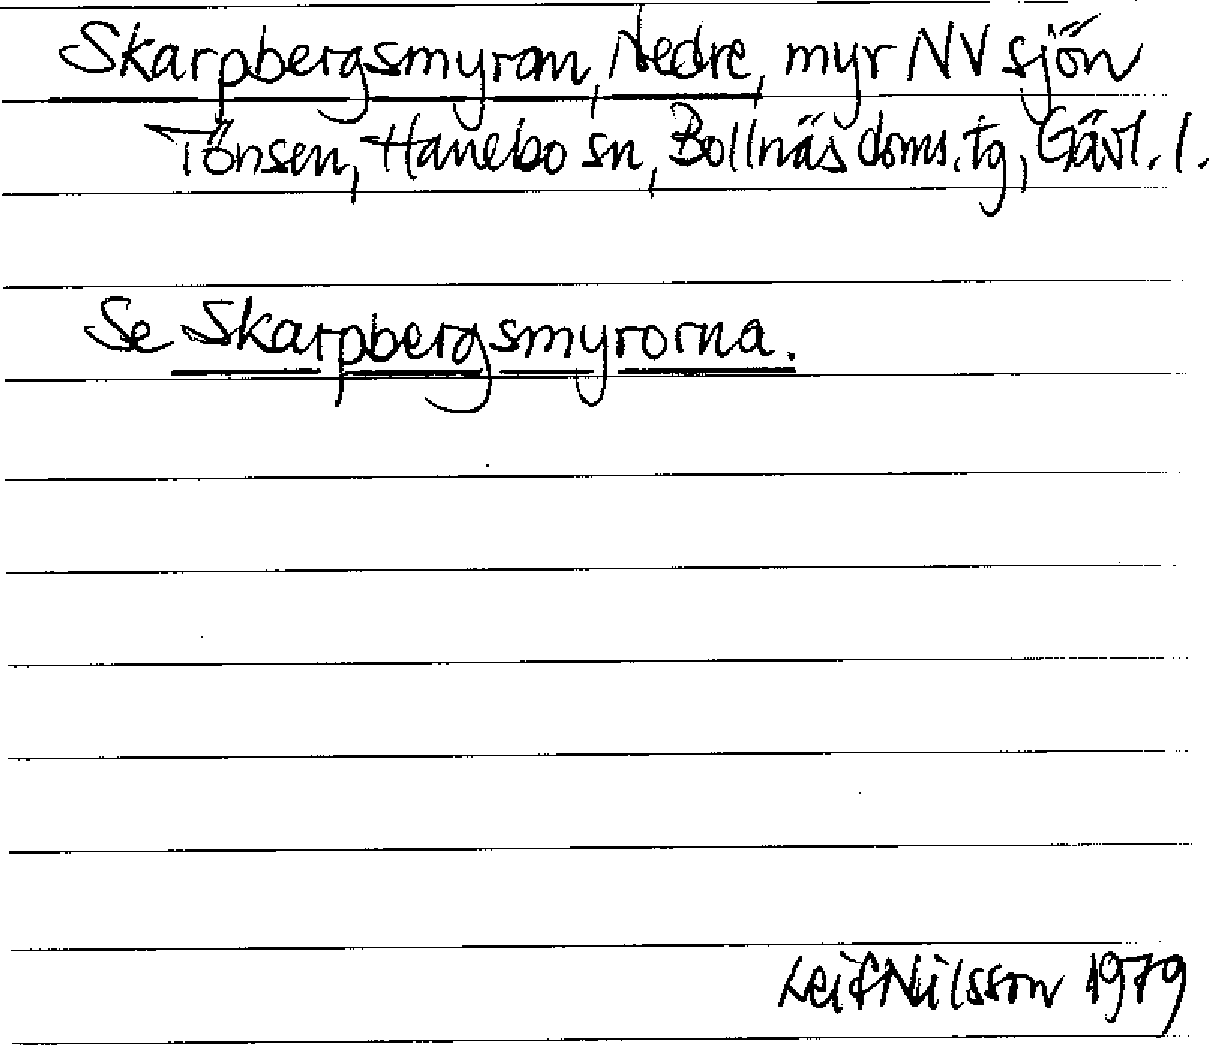 Skarpbergsmyran, Nedre, myr NV sjön
Tönsen, Hanebo sn, Bollnäs doms. tg, Gävl. l.
Se Skarpbergsmyrorna.
Leif Nilsson 1979